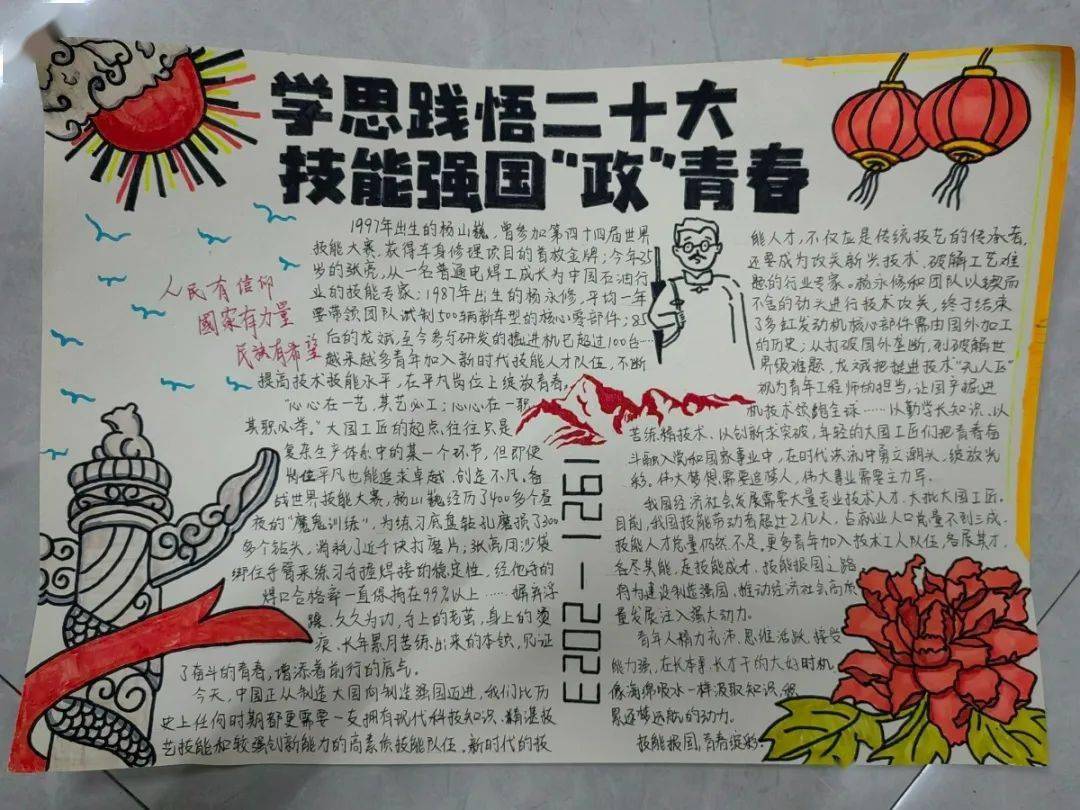 学思践悟二十大
技能强国"政"青春
人民有信仰
國家有力量
民族有希望
1997年出生的杨山巍,曾参加第四十四届世界
技能大赛,获得车身修理项目的首枚金牌;今年25
岁的张亮,从一名普通电焊工成长为中国石油行
业的技能专家;1987年出生的杨永修,平均一年
要带领团队试制500辆新车型的核心零部件;85
后的龙斌,至今参与研发的掘进机已超过100台…
越来越多青年加入新时代技能人才队伍,不断
提高技术技能水平,在平凡岗位上绽放青春。
"心心在一艺,其艺必工;心心在一职,
其职必举。"大国工匠的起点,往往只是
复杂生产体系中的某一个环节,但即便
岗位平凡也能追求卓越、创造不凡。备
战世界技能大赛,杨山巍经历了400多个昼
夜的"魔鬼训练",为练习底盘钻孔磨损了300
多个钻头,消耗了近千块打磨片;张亮用沙袋
绑住手臂来练习手握焊接的稳定性,经他手的
焊口合格率一直保持在99%以上……摒弃浮
躁、久久为功,手上的老茧,身上的烫
痕、长年累月苦练出来的本领,见证
了奋斗的青春,增添着前行的底气。
今天,中国正从制造大国向制造强国迈进,我们比历
史上任何时期都更需要一支拥有现代科技知识、精湛技
艺技能和较强创新能力的高素质技能队伍。新时代的技
1921—2023
能人才,不仅应是传统技艺的传承者,
还要成为攻关新兴技术、破解工艺难
题的行业专家。杨永修和团队以锲而
不舍的劲头进行技术攻关,终于结束
了多缸发动机核心部件需由国外加工
的历史;从打破国外垄断,到破解世
界级难题,龙斌把挺进技术"无人区"
视为青年工程师的担当,让国产掘进
机技术领跑全球……以勤学长知识、以
苦练精技术、以创新求突破,年轻的大国工匠们把青春奋
斗融入党和国家事业中,在时代洪流中勇立潮头、绽放光
彩。伟大梦想需要追梦人,伟大事业需要主力军。
我国经济社会发展需要大量专业技术人才、大批大国工匠。
目前,我国技能劳动者超过2亿人,占就业人口总量不到三成,
技能人才总量仍然不足,更多青年加入技术工人队伍,各展其才、
各尽其能,走技能成才、技能报国之路,
将为建设制造强国、推动经济社会高质
量发展注入强大动力。
青年人精力充沛、思维活跃、接受
能力强,在长本事、长才干的大好时机,
像海绵吸水一样汲取知识,积
累逐梦远航的动力。
技能报国,青春绽彩。